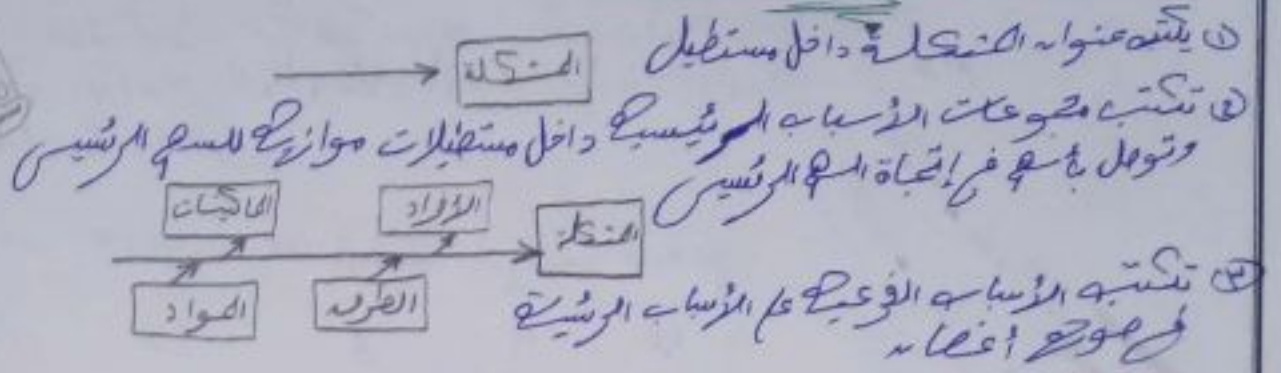 ① يكتب عنوان المشكلة داخل مستطيل
المشكلة
② تكتب مجموعات الأسباب الرئيسية داخل مستطيلات موازية للسهم الرئيسى
وتوصل بأسهم فى إتجاة السهم الرئيسى
الماكينات الأفراد
المشكلة
المواد الطرق
③ تكتب الأسباب الفرعية على الأسباب الرئيسية
فى صورة أغصان